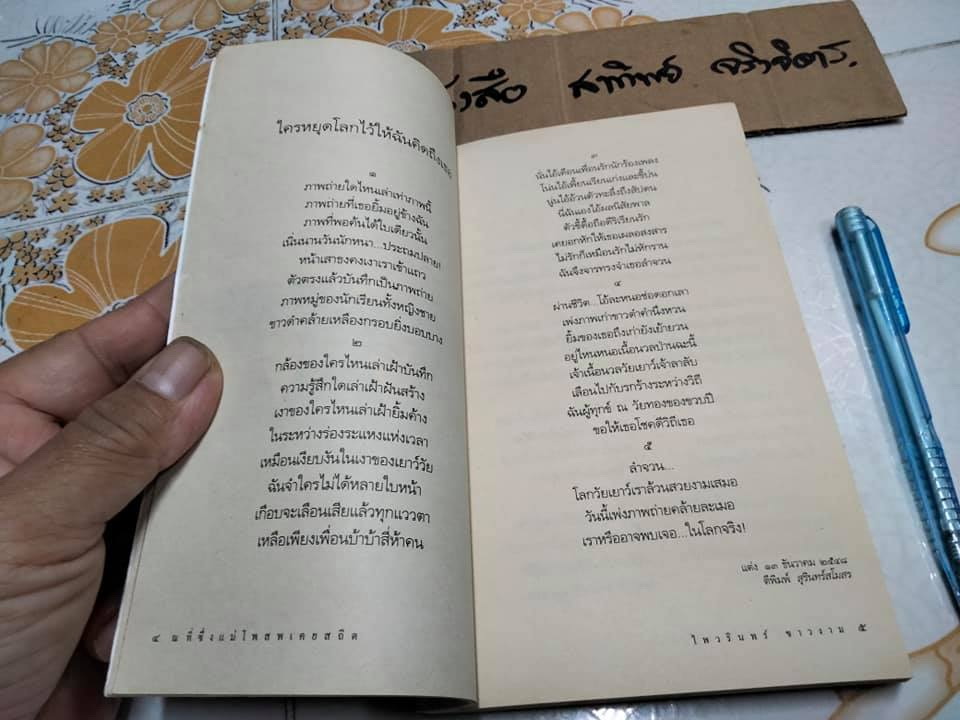 หนังสือ สาทิพย์
ใครหยุดโลกไว้ให้ฉันคิดถึงเธอ
๑
ภาพถ่ายใดไหนเล่าเท่าภาพนี้
ภาพถ่ายที่เธอยิ้มอยู่ข้างฉัน
ภาพที่พอค้นได้ใบเดียวนั้น
เนิ่นนานวันนักหนา...ประถมปลาย!
หน้าเสาธงคงเงาเราเข้าแถว
ตัวตรงแล้วบันทึกเป็นภาพถ่าย
ภาพหมู่ของนักเรียนทั้งหญิงชาย
ขาวดำคล้ายเหลืองกรอบยิ่งบอบบาง
๒
กล้องของใครไหนเล่าเฝ้าบันทึก
ความรู้สึกใดเล่าเฝ้าฝันสร้าง
เงาของใครไหนเล่าเฝ้ายิ้มค้าง
ในระหว่างร่องระแหงแห่งเวลา
เหมือนเงียบงันในเงาของเยาว์วัย
ฉันจำใครไม่ได้หลายใบหน้า
เกือบจะเลือนเสียแล้วทุกแววตา
เหลือเพียงเพื่อนบ้าบ้าสี่ห้าคน
๔ ณ ที่ซึ่งแม่โพสพเคยสถิต
๓
นั่นไอ้เดือนเพื่อนรักนักร้องเพลง
โน่นไอ้เพี้ยนเรียนเก่งและขี้บ่น
นู่นไอ้อ้วนตัวทะลึ่งถึงสัปดน
นี่ฉันเองไอ้ผลนิสัยพาล
ตัวขี้ดื้อถือดีริเรียนรัก
เคยอกหักให้เธอเผลอสงสาร
ไม่รักก็เหมือนรักไม่หักราน
ฉันจึงจารทรวงจำเธอลำจวน
๔
ผ่านชีวิต...โอ้ละหนอช่อดอกเลา
เพ่งภาพเก่าขาวดำคำนึงหวน
ยิ้มของเธอถึงเก่ายังเย้ายวน
อยู่ไหนหนอเนื้อนวลป่านฉะนี้
เจ้าเนื้อนวลวัยเยาว์เจ้าลาลับ
เลือนไปกับรกร้างระหว่างวิถี
ฉันผู้ทุกข์ ณ วัยทองของขวบปี
ขอให้เธอโชคดีวิถีเธอ
๕
ลำจวน...
โลกวัยเยาว์เราล้วนสวยงามเสมอ
วันนี้เพ่งภาพถ่ายคล้ายละเมอ
เราหรืออาจพบเจอ...ในโลกจริง!
แต่ง ๑๓ ธันวาคม ๒๕๔๘
ตีพิมพ์ สุรินทร์สโมสร
ไพวรินทร์ ขาวงาม ๕